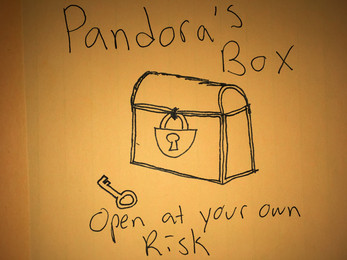 Pandora's
Box
Open at your own
Risk